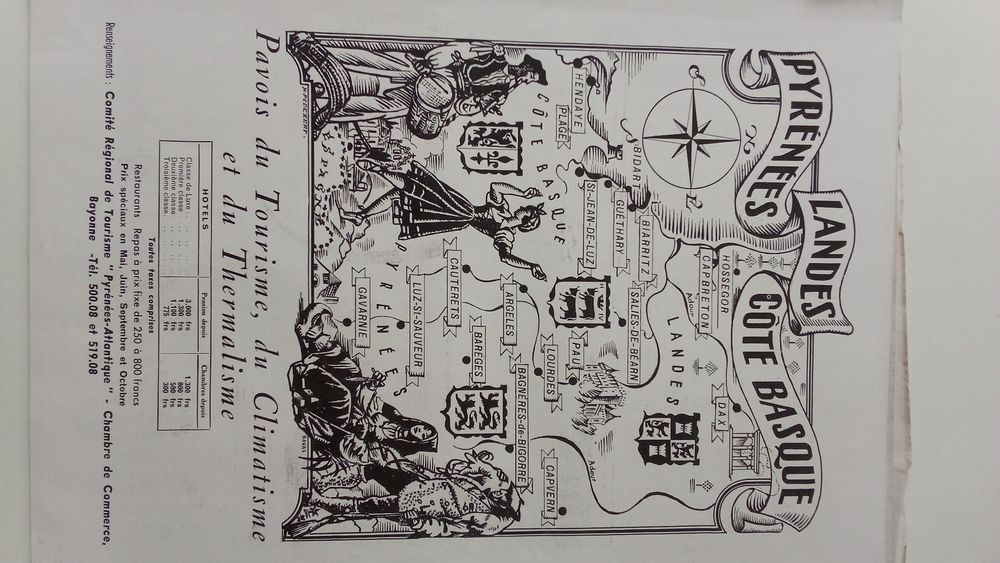 PYRÉNÉES
LANDES
CÔTE BASQUE
N
E
S
HOSSEGOR
CAPBRETON
DAX
LANDES
Adour
BIDART
BIARRITZ
GUÉTHARY
St-JEAN-DE-LUZ
HENDAYE
PLAGE
CÔTE BASQUE
SALIES-DE-BÉARN
PAU
LOURDES
Adour
CAPVERN
BAGNÈRES-de-BIGORRE
ARGELÈS
BARÈGES
CAUTERETS
LUZ-St-SAUVEUR
GAVARNIE
PYRÉNÉES
Pavois du Tourisme, du Climatisme
et du Thermalisme
HOTELS
Pension depuis
Chambres depuis
Classe de Luxe . . 3.000 frs 1.300 frs
Première classe . . 1.300 frs 800 frs
Deuxième classe . . 1.100 frs 500 frs
Troisième classe . . 775 frs 300 frs
Toutes taxes comprises
Restaurants Repas à prix fixe de 250 à 800 francs
Prix spéciaux en Mai, Juin, Septembre et Octobre
Renseignements : Comité Régional de Tourisme "Pyrénées-Atlantique" - Chambre de Commerce,
Bayonne -Tél. 500.08 et 519.08